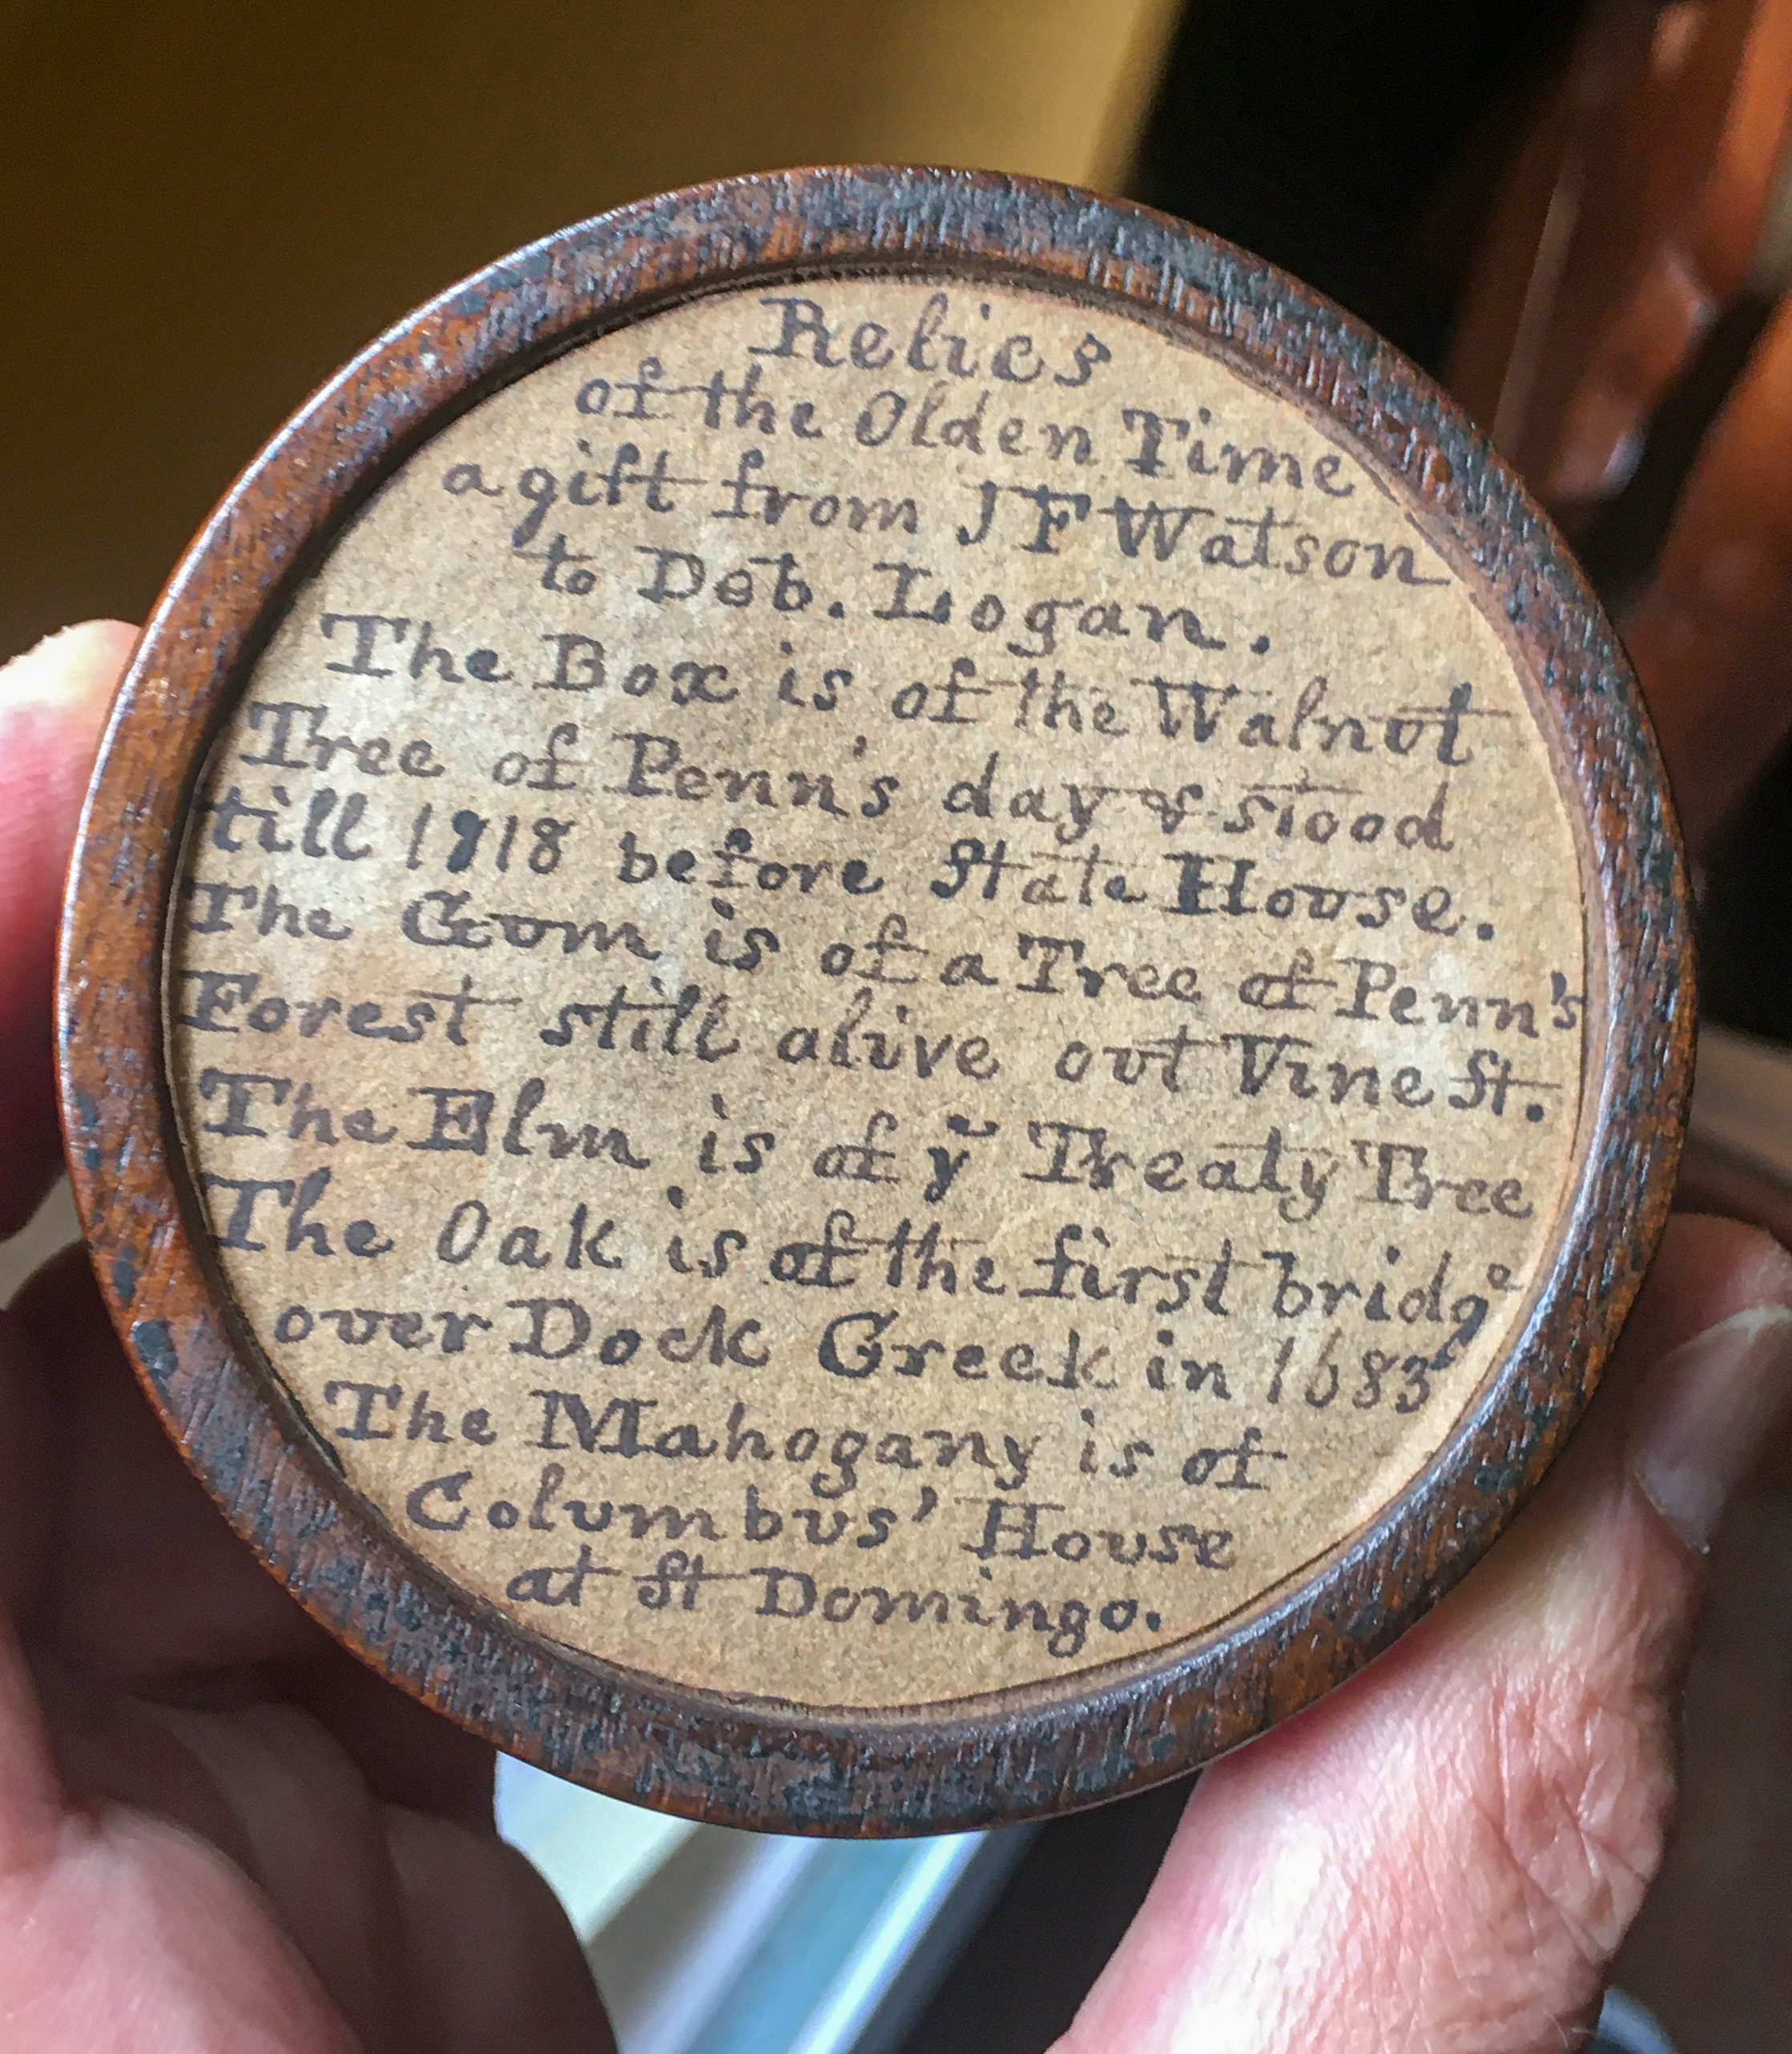 Relics
of the Olden Time
a gift from J F Watson
to Deb. Logan.
The Box is of the Walnut
Tree of Penn's day & stood
till 1818 before State House.
The Gum is of a Tree of Penn's
Forest still alive out Vine St.
The Elm is of yᵉ Treaty Tree
The Oak is of the first bridge
over Dock Creek in 1683
The Mahogany is of
Columbus' House
at St Domingo.